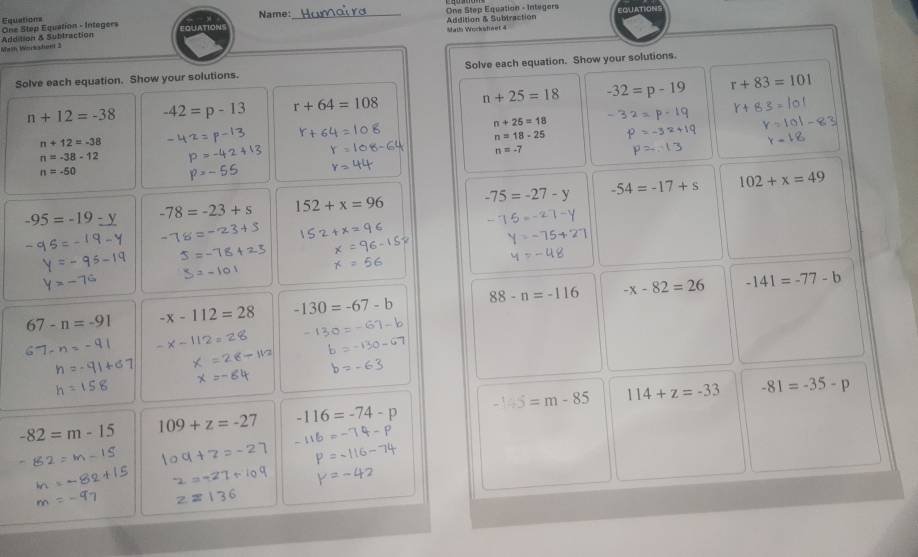 Equations
One Step Equation - Integers
Addition & Subtraction
Math Worksheet 3
EQUATIONS
Name: Humaira
Solve each equation. Show your solutions.
n + 12 = -38
n + 12 = -38
n = -38 - 12
n = -50
-42 = p - 13
-42 = p - 13
p = -42 + 13
p = -55
r + 64 = 108
r + 64 = 108
r = 108 - 64
r = 44
-95 = -19 - y
-95 = -19 - y
y = -95 - 19
y = -76
-78 = -23 + s
-78 = -23 + s
s = -78 + 23
s = -101
152 + x = 96
152 + x = 96
x = 96 - 152
x = 56
67 - n = -91
67 - n = -91
n = -91 + 67
n = 158
-x - 112 = 28
-x - 112 = 28
x = 28 - 112
x = -84
-130 = -67 - b
-130 = -67 - b
b = -130 - 67
b = -63
-82 = m - 15
-82 = m - 15
m = -82 + 15
m = -97
109 + z = -27
109 + z = -27
z = -27 + 109
z = 136
-116 = -74 - p
-116 = -74 - p
p = -116 - 74
p = -42
Equations
One Step Equation - Integers
Addition & Subtraction
Math Worksheet 4
EQUATIONS
Solve each equation. Show your solutions.
n + 25 = 18
n + 25 = 18
n = 18 - 25
n = -7
-32 = p - 19
-32 = p - 19
p = -32 + 19
p = -13
r + 83 = 101
r + 83 = 101
r = 101 - 83
r = 18
-75 = -27 - y
-75 = -27 - y
y = -75 + 27
y = -48
-54 = -17 + s
102 + x = 49
88 - n = -116
-x - 82 = 26
-141 = -77 - b
-145 = m - 85
114 + z = -33
-81 = -35 - p